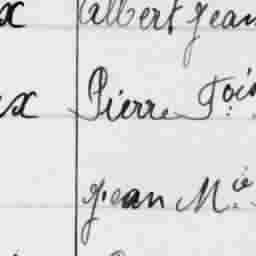 x Albert Jean
x Pierre Fois
Jean Mie